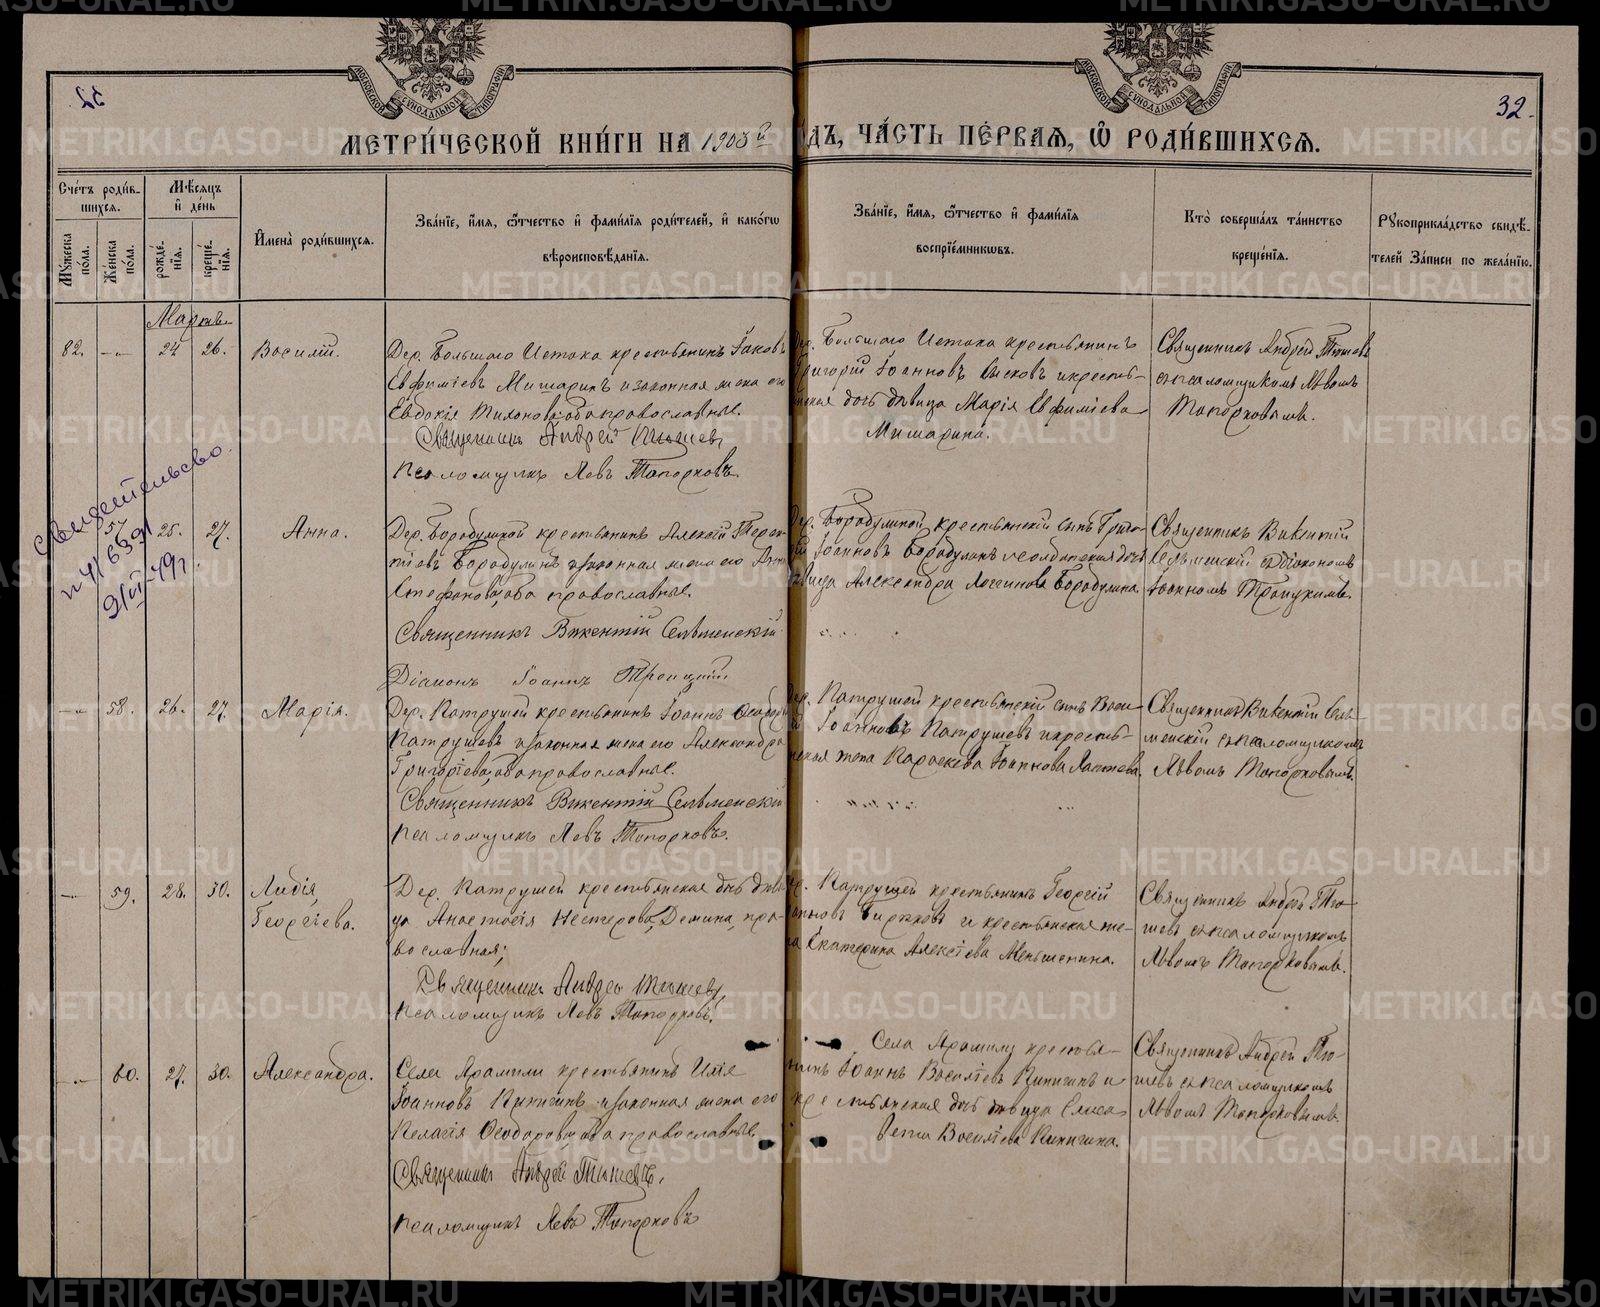 МОСКОВСКОЙ СѴНОДАЛЬНОЙ ТИПОГРАФІИ
МОСКОВСКОЙ СѴНОДАЛЬНОЙ ТИПОГРАФІИ
32.
МЕТРИ́ЧЕСКОЙ КНИ́ГИ НА 1903й
ДЪ, ЧА́СТЬ ПЕ́РВАЯ, Ѿ РОДИ́ВШИХСЯ.
Сче́тъ роди́в-
шихся.
Мѣ́сяцъ
и҆ де́нь
Мꙋ́жеска по́ла.
Же́нска по́ла.
рожде́-
нїя.
креще́-
нїя.
И҆мена̀ роди́вшихся.
Зва́нїе, и҆́мя, ѻ҆́тчество и҆ фами́лїя роди́телей, и҆ како́гѡ
вѣроисповѣ́данїя.
Зва́нїе, и҆́мя, ѻ҆́тчество и҆ фами́лїя
воспрїе́мникѡвъ.
Кто̀ соверша́лъ та́инство
креще́нїя.
Рꙋкоприкла́дство свидѣ́-
телей За́писи по жела́нїю.
Мартъ.
82.
24
26.
Василій.
Дер. Большаго Истока крестьянинъ Іаковъ
Евфиміевъ Мишаринъ и законная жена его
Евдокія Тихонова, оба православные.
Священникъ Андрей Тюшев
Псаломщикъ Левъ Топорковъ.
Большаго Истока крестьянинъ
Григорій Іоанновъ и крестья-
нская дочь девица Марія Евфиміева
Мишарина.
Священникъ Андрей Тюшевъ
съ псаломщикомъ Львомъ
Топорковымъ.
Свидетельство
57
25.
27.
Анна.
Дер. Бородулиной крестьянинъ Алексій Терен-
тіевъ Бородулинъ и законная жена его Анна
Стефанова, оба православные.
Священникъ Викентій Сельменскій
Діаконъ Іоаннъ Троицкій
Бородулиной крестьянскій сынъ Григо-
рій Іоанновъ Бородулинъ и солдатская дочь
девица Александра Логинова Бородулина.
Священникъ Викентій
Сельменскій съ діакономъ
Іоанномъ Троицкимъ.
58.
26.
27.
Марія.
Дер. Патрушей крестьянинъ Іоаннъ Ѳеодоровъ
Патрушевъ и законная жена его Александра
Григоріева, оба православные.
Священникъ Викентій Сельменскій
Псаломщикъ Левъ Топорковъ.
Патрушей крестьянскій сынъ Васи-
лій Іоанновъ Патрушевъ и крестья-
нская жена Параскева Іоаннова Лаптева.
Священникъ Викентій Сель-
менскій съ псаломщикомъ
Львомъ Топорковымъ.
59.
28.
30.
Лидія,
Георгіева.
Дер. Патрушей крестьянская дочь деви-
ца Анастасія Нестерова Демина, пра-
вославная;
Священникъ Андрей Тюшев,
Псаломщикъ Левъ Топорковъ.
Патрушей крестьянинъ Георгій
и крестьянская же-
на Екатерина Алексіева Меньшенина.
Священникъ Андрей Тю-
шевъ съ псаломщикомъ
Львомъ Топорковымъ.
60.
27.
30.
Александра.
Села Арамили крестьянинъ Илія
Іоанновъ Кипигинъ и законная жена его
Пелагія Ѳеодорова, оба православные.
Священникъ Андрей Тюшевъ,
Псаломщикъ Левъ Топорковъ
Села Арамили крестья-
нинъ Іоаннъ Василіевъ Кипигинъ и
крестьянская дочь девица Елиса-
вета Василіева Кипигина.
Священникъ Андрей Тю-
шевъ съ псаломщикомъ
Львомъ Топорковымъ.
METRIKI.GASO-URAL.RU